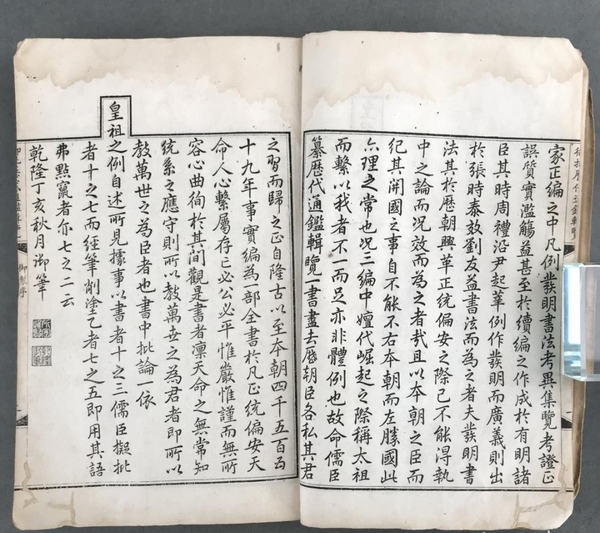 家正編之中凡例發明書法考異集覽考證正
誤質實濫觴益甚至於續編之作成於有明諸
臣其時周禮沿尹起莘例作發明而廣義則出
於張時泰效劉友益書法而為之者夫發明書
法其於厯朝興革正統偏安之際已不能得執
中之論而況效而為之者哉且以本朝之臣而
紀其開國之事自不能不右本朝而左勝國此
亦理之常也況三編中嬗代崛起之際稱太祖
而繫以我者不一而足亦非體例也故命儒臣
纂厯代通鑑輯覽一書盡去厯朝臣各私其君
之習而歸之正自隆古以至本朝四千五百五
十九年事實編為一部全書於凡正統偏安天
命人心繫屬存亡必公必平惟嚴惟謹而無所
容心曲徇於其間觀是書者凛天命之無常知
統系之應守則所以教萬世之為君者即所以
教萬世之為臣者也書中批論一依
皇祖之例自述所見據事以書者十之三儒臣擬批
者十之七而經筆削塗乙者七之五即用其語
弗點竄者亦七之二云
乾隆丁亥秋月御筆